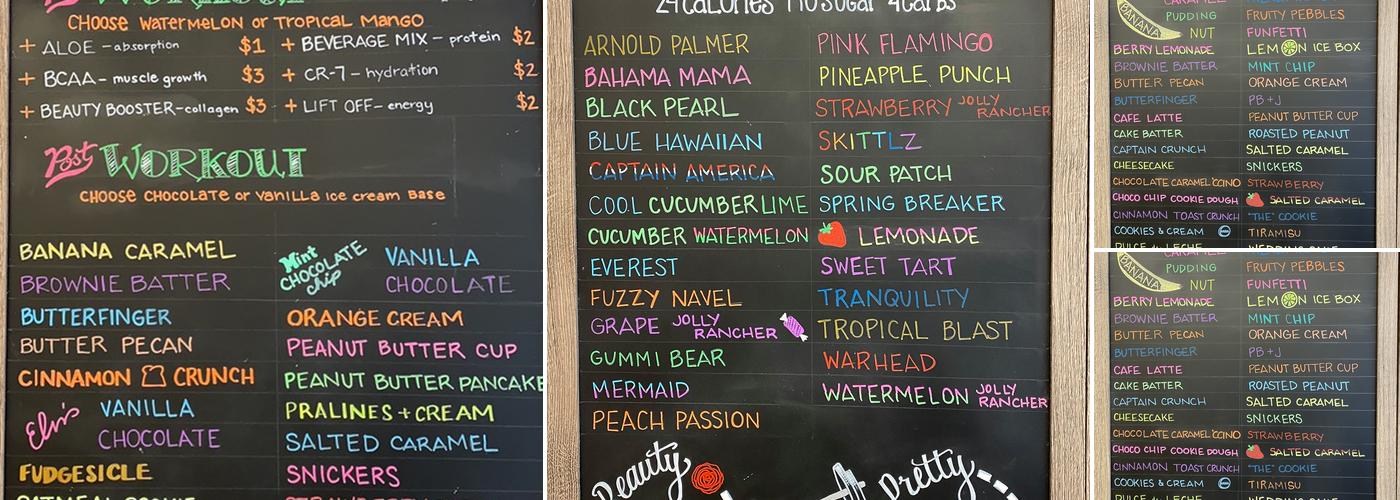 WORKOUT
CHOOSE WATERMELON or TROPICAL MANGO
+ ALOE - absorption $1
+ BCAA - muscle growth $3
+ BEAUTY BOOSTER - collagen $3
+ BEVERAGE MIX - protein $2
+ CR-7 - hydration $2
+ LIFT OFF - energy $2
Post WORKOUT
CHOOSE CHOCOLATE or VANILLA ice cream Base
BANANA CARAMEL
BROWNIE BATTER
BUTTERFINGER
BUTTER PECAN
CINNAMON CRUNCH
Elvis VANILLA
CHOCOLATE
FUDGESICLE
OATMEAL COOKIE
Mint CHOCOLATE Chip VANILLA
CHOCOLATE
ORANGE CREAM
PEANUT BUTTER CUP
PEANUT BUTTER PANCAKE
PRALINES + CREAM
SALTED CARAMEL
SNICKERS
24 calories no sugar 4 carbs
ARNOLD PALMER
BAHAMA MAMA
BLACK PEARL
BLUE HAWAIIAN
CAPTAIN AMERICA
COOL CUCUMBER LIME
CUCUMBER WATERMELON
EVEREST
FUZZY NAVEL
GRAPE JOLLY RANCHER
GUMMI BEAR
MERMAID
PEACH PASSION
PINK FLAMINGO
PINEAPPLE PUNCH
STRAWBERRY JOLLY RANCHER
SKITTLZ
SOUR PATCH
SPRING BREAKER
LEMONADE
SWEET TART
TRANQUILITY
TROPICAL BLAST
WARHEAD
WATERMELON JOLLY RANCHER
Beauty
Pretty
CARAMEL
BANANA PUDDING
NUT
BERRY LEMONADE
BROWNIE BATTER
BUTTER PECAN
BUTTERFINGER
CAFE LATTE
CAKE BATTER
CAPTAIN CRUNCH
CHEESECAKE
CHOCOLATE CARAMEL 'CCINO
CHOCO CHIP COOKIE DOUGH
CINNAMON TOAST CRUNCH
COOKIES & CREAM
DULCE de LECHE
FRUITY PEBBLES
FUNFETTI
LEMON ICE BOX
MINT CHIP
ORANGE CREAM
PB + J
PEANUT BUTTER CUP
ROASTED PEANUT
SALTED CARAMEL
SNICKERS
STRAWBERRY
SALTED CARAMEL
"THE" COOKIE
TIRAMISU
WEDDING CAKE
BANANA PUDDING
NUT
BERRY LEMONADE
BROWNIE BATTER
BUTTER PECAN
BUTTERFINGER
CAFE LATTE
CAKE BATTER
CAPTAIN CRUNCH
CHEESECAKE
CHOCOLATE CARAMEL 'CCINO
CHOCO CHIP COOKIE DOUGH
CINNAMON TOAST CRUNCH
COOKIES & CREAM
DULCE de LECHE
FRUITY PEBBLES
FUNFETTI
LEMON ICE BOX
MINT CHIP
ORANGE CREAM
PB + J
PEANUT BUTTER CUP
ROASTED PEANUT
SALTED CARAMEL
SNICKERS
STRAWBERRY
SALTED CARAMEL
"THE" COOKIE
TIRAMISU
WEDDING CAKE